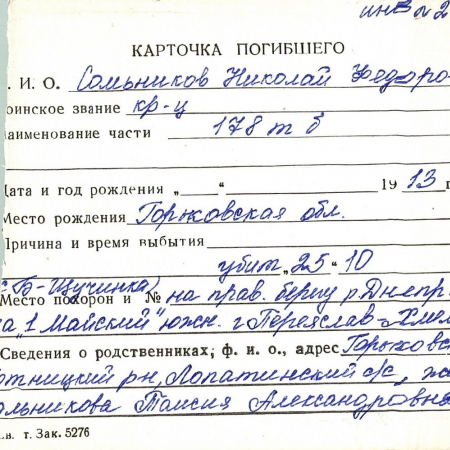 инв № 2
КАРТОЧКА ПОГИБШЕГО
. И. О. Сомьников Николай Федоро
оинское звание кр-ц
аименование части 178 т б
Дата и год рождения „ “ 1913 г
Место рождения Горьковская обл.
Причина и время выбытия
убит „25"10
с Б-Щучинка)
Место похорон и № на прав. берегу р. Днепр.
"1 Майский" южн. г Переяслав-Хмел
Сведения о родственниках, ф. и. о., адрес Горьковс
отницкий рн, Лопатинский с/с, же
льникова Таисия Александровна
ів. т. Зак. 5276